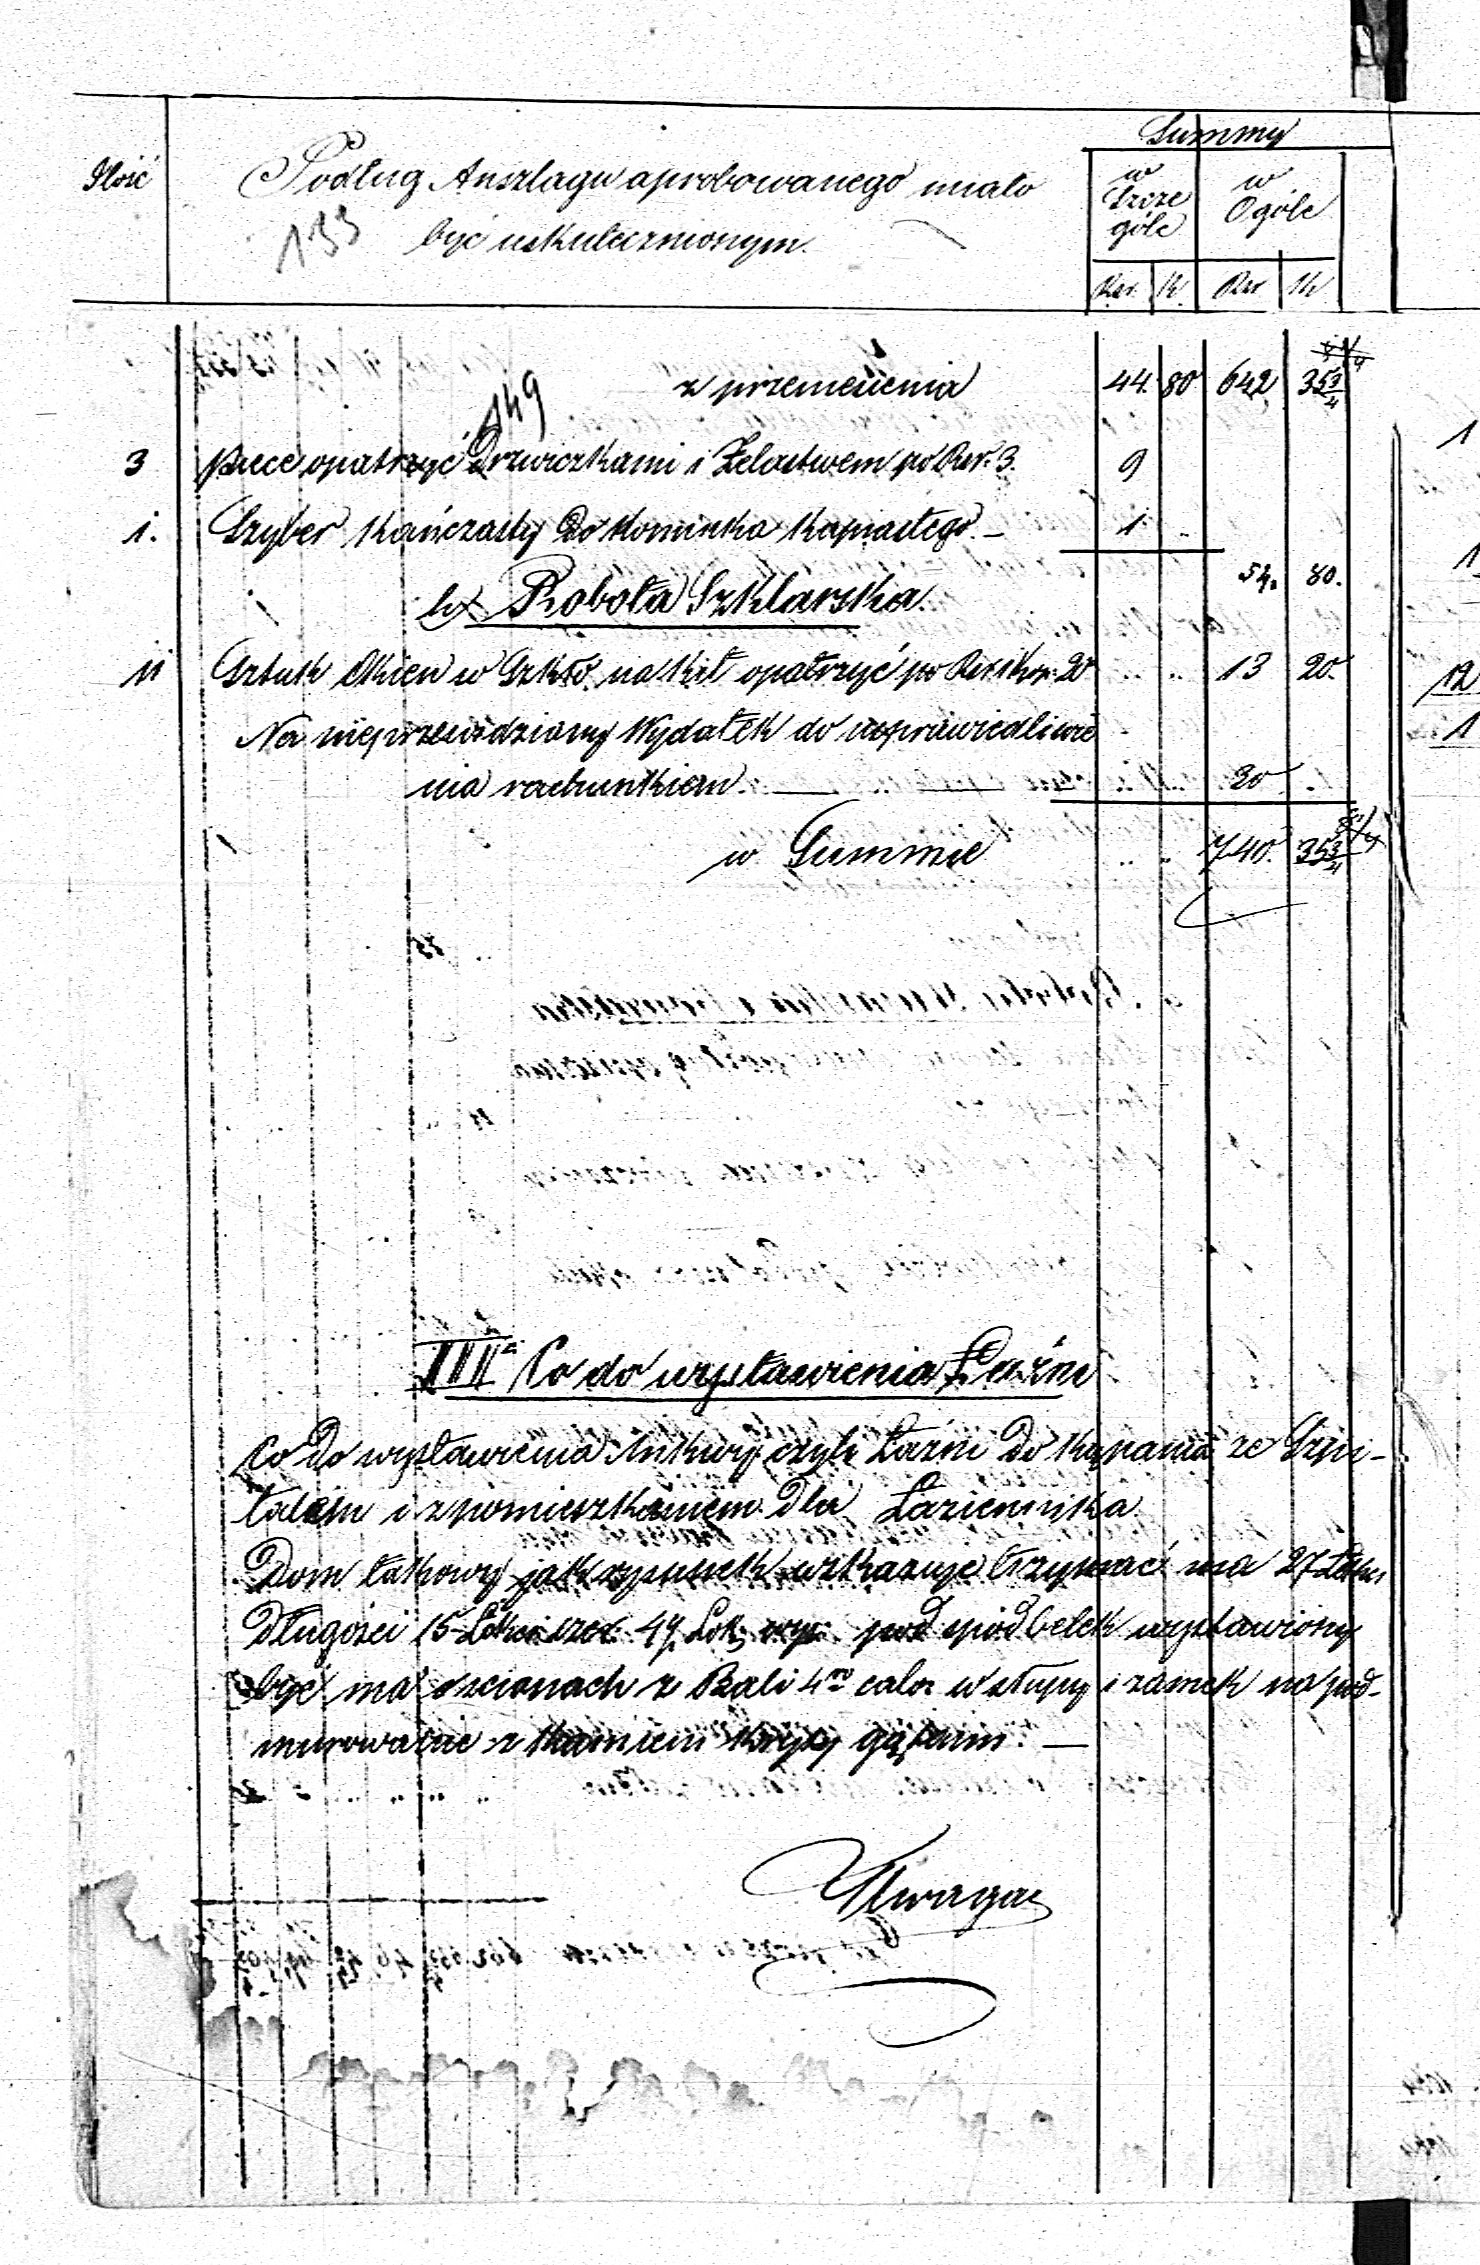 Ilość
Podług Anszlagu aprobowanego miało
133 być uskutecznionym.
Summy
w Szczególe
w Ogóle
Rsr. K. Rsr K
z przeniesienia 44. 80 642 35 3/4
149
3 piece opatrzyć Drzwiczkami i Żelastwem po Rsr. 3. 9
1. Szyber Kańczasty Do Kominka Kapiastego. — 1
54. 80.
Robota Szklarska.
11 Sztuk Okien w Szkło na Kit opatrzyć po Rsr 1 kop. 20 13 20.
Na nieprzewidziany Wydatek do usprawiedliwie
nia rachunkiem — 20
w Summie 740. 35 3/4
III Co do wystawienia Łaźni
Co Do wystawienia Mikwy czyli Łaźni Do Kąpania ze Szpi-
talem i z pomieszkaniem Dla Łaziennika
Dom takowy jak rysunek wskazuje trzymać ma 27 Łok.
Długości 15 Łokci szer. 4 1/2 Łok. wys. pod spód belek wystawiony
być ma o ścianach z Bali 4ro calo. w słupy i zamek na pod-
murowanie z Kamieni Kryty gątami. —
Uwaga